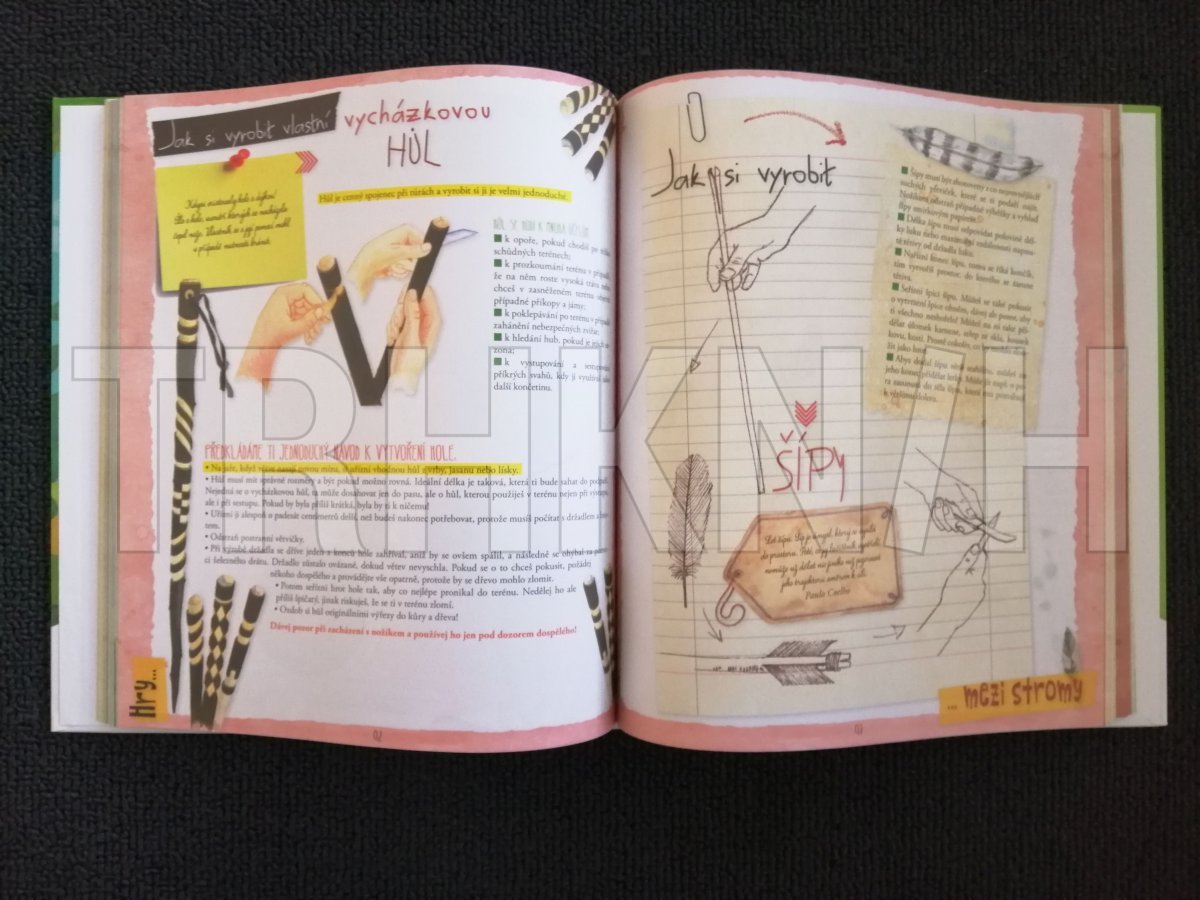 Jak si vyrobit vlastní vycházkovou
HŮL
Hůl je cenný spojenec při túrách a vyrobit si ji je velmi jednoduché.
Kdysi existovaly hole s dýkou!
v případě nutnosti bránit.
k opoře, pokud chodíš po
schůdných terénech;
k prozkoumání terénu v případě,
že na něm roste vysoká tráva nebo
chceš v zasněženém terénu objevit
případné příkopy a jámy;
k poklepávání po terénu v případě
zahánění nebezpečných zvířat;
k hledání hub, pokud je jejich se-
zona;
k vystupování a sestupování
příkrých svahů, kdy ji využiješ jako
další končetinu.
PŘEDKLÁDÁME TI JEDNODUCHÝ NÁVOD K VYTVOŘENÍ HOLE.
• Na jaře, když větve nasají novou mízu, si uřízni vhodnou hůl z vrby, jasanu nebo lísky.
• Hůl musí mít správné rozměry a být pokud možno rovná. Ideální délka je taková, která ti bude sahat do podpaží.
Nejedná se o vycházkovou hůl, ta může dosahovat jen do pasu, ale o hůl, kterou použiješ v terénu nejen při výstupu,
ale i při sestupu. Pokud by byla příliš krátká, byla by ti k ničemu!
• Uřízni ji alespoň o padesát centimetrů delší, než budeš nakonec potřebovat, protože musíš počítat s držadlem a hro-
tem.
• Odstraň postranní větvičky.
• Při výrobě držadla se dříve jeden z konců hole zahříval, aniž by se ovšem spálil, a následně se ohýbal za pomo-
ci železného drátu. Držadlo zůstalo ovázané, dokud větev nevyschla. Pokud se o to chceš pokusit, požádej
někoho dospělého a provádějte vše opatrně, protože by se dřevo mohlo zlomit.
• Potom seřízni hrot hole tak, aby co nejlépe pronikal do terénu. Nedělej ho ale
příliš špičatý, jinak riskuješ, že se ti v terénu zlomí.
• Ozdob si hůl originálními výřezy do kůry a dřeva!
Dávej pozor při zacházení s nožíkem a používej ho jen pod dozorem dospělého!
Hry...
Jak si vyrobit
ŠÍPY
Šípy musí být zhotoveny z co nejrovnějších
suchých větviček, které se ti podaří najít.
Nožíkem odstraň případné výběžky a vyhlaď
šípy smirkovým papírem.
Délka šípu musí odpovídat polovině dél-
ky luku nebo maximální vzdálenosti napnu-
té tětivy od držadla luku.
Nařízni konec šípu, tomu se říká končík,
tím vytvoříš prostor, do kterého se zasune
tětiva.
Seřízni špici šípu. Můžeš se také pokusit
o vytvrzení špice ohněm, dávej ale pozor, aby
ti všechno neshořelo! Můžeš na ni také při-
dělat úlomek kamene, střep ze skla, kousek
kovu, kosti.
Let šípu. Šíp je úmysl, který se vysílá
do prostoru.
Paulo Coelho
... mezi stromy
TRHKNIH